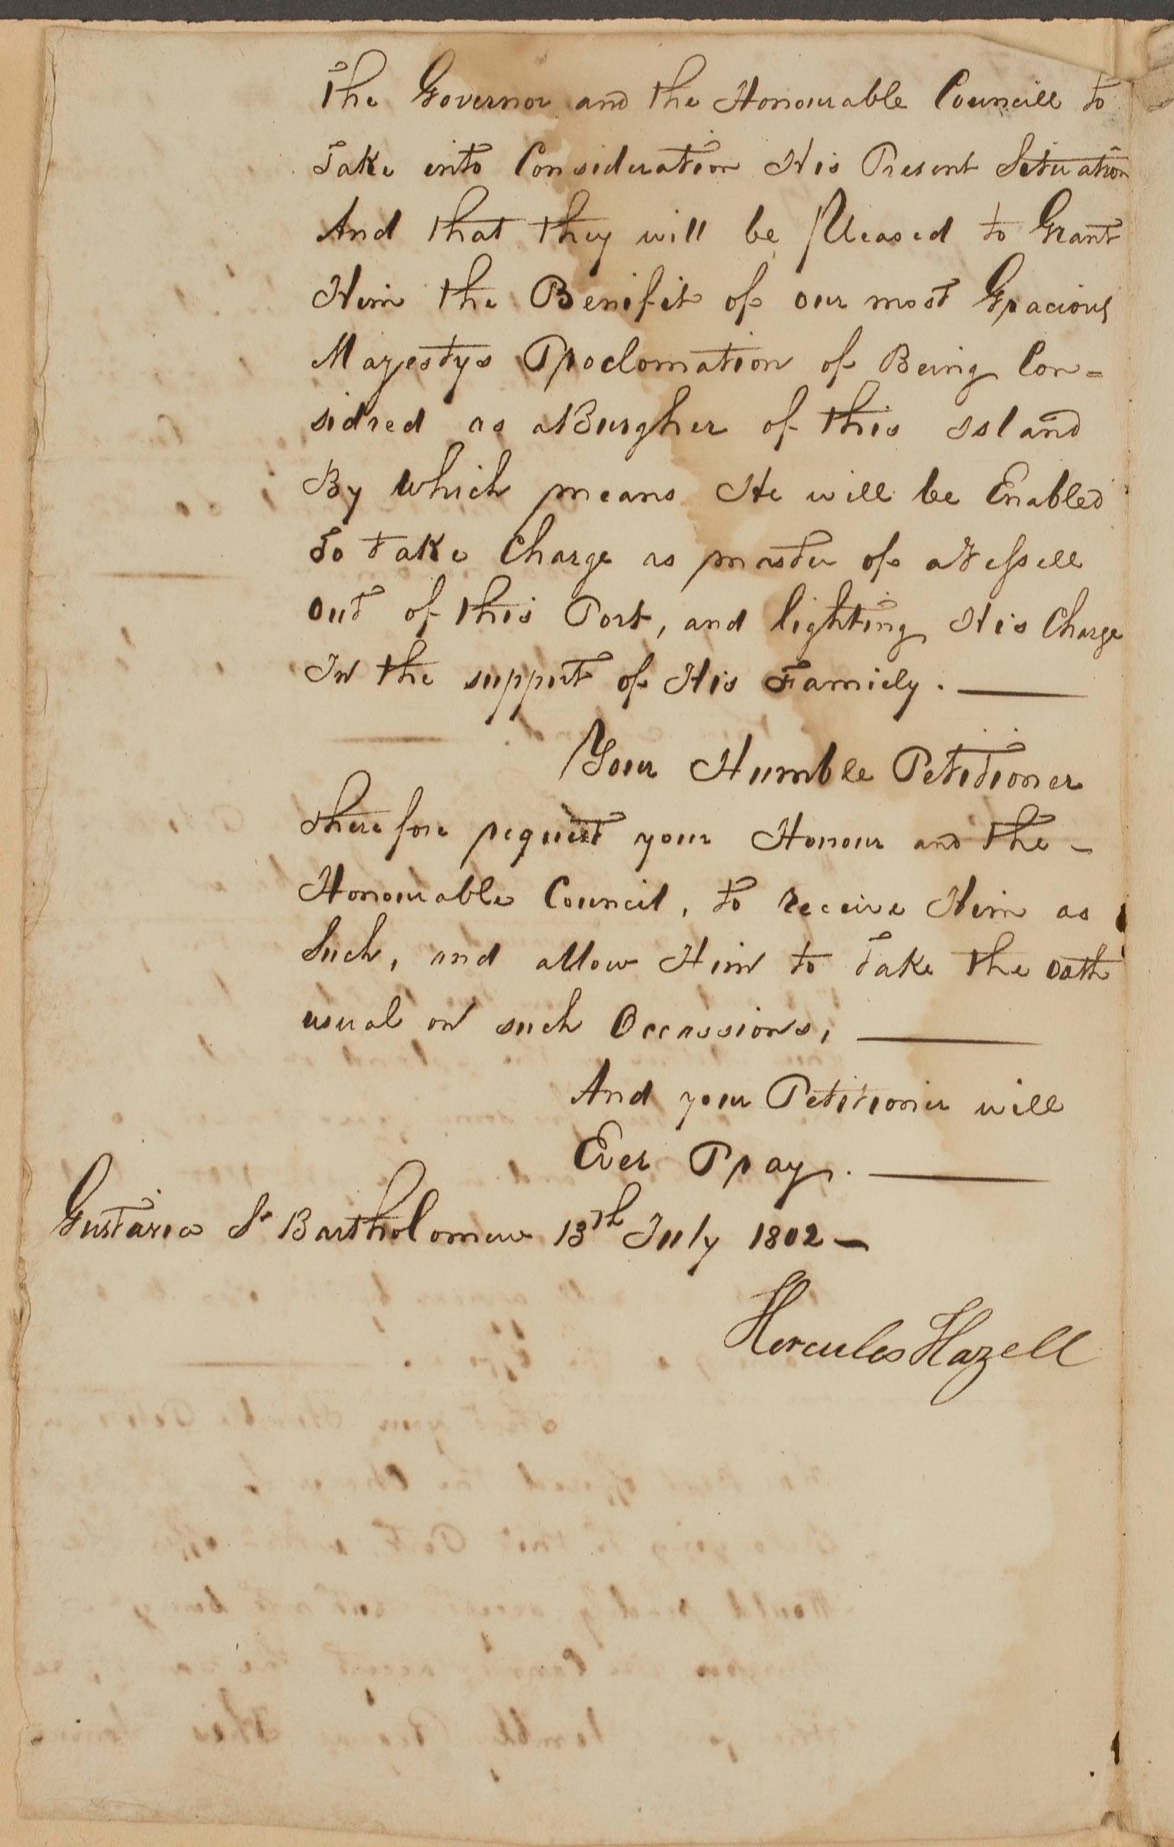 The Governor and the Honourable Councill to
Take into Consideration His Present Situation
And that they will be Pleased to Grant
Him the Benifit of our most Gracious
Majestys Proclomation of Being Con=
sidred as a Burgher of this Island
By which means He will be Enabled
To take Charge as master of a Vessell
out of this Port, and lighting His Charge
In the support of His Familly.
Your Humble Petitioner
therefore request your Honour and the –
Honourable Council, to receive Him as
Such, and allow Him to Take the oath
usual on such Occassions,
And your Petitioner will
Ever Pray.
Gustavia St Bartholomew 13th July 1802 –
Hercules Hazell